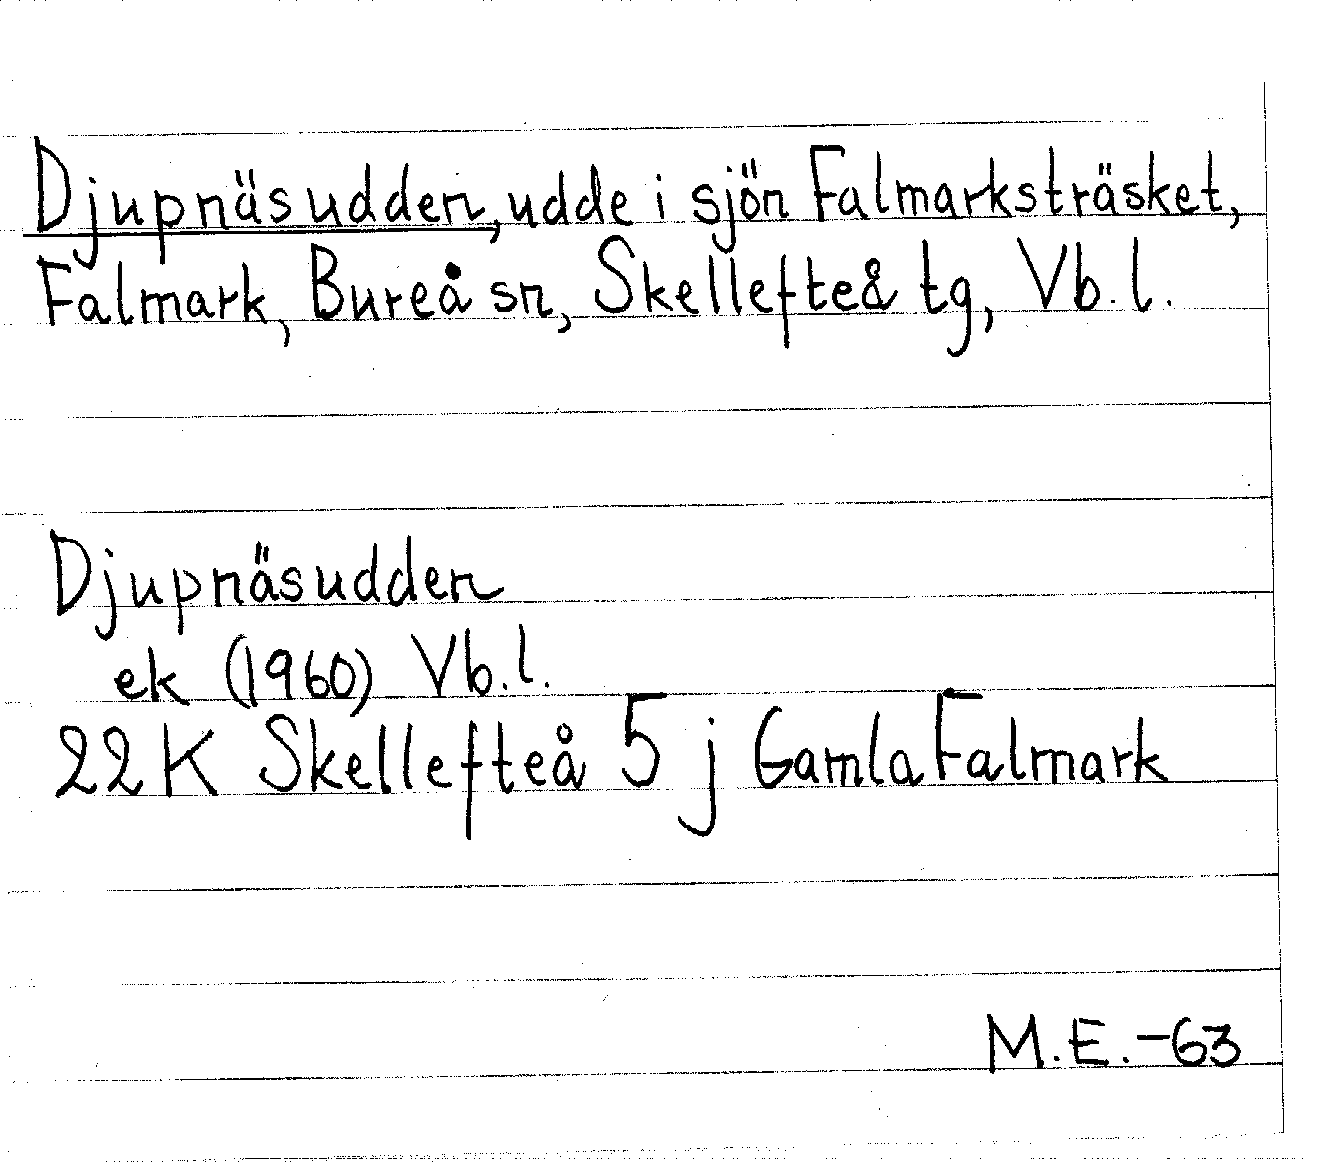 Djupnäsudden, udde i sjön Falmarksträsket,
Falmark, Bureå sn, Skellefteå tg, Vb.l.
Djupnäsudden
ek (1960) Vb.l.
22K Skellefteå 5 j Gamla Falmark
M.E.-63